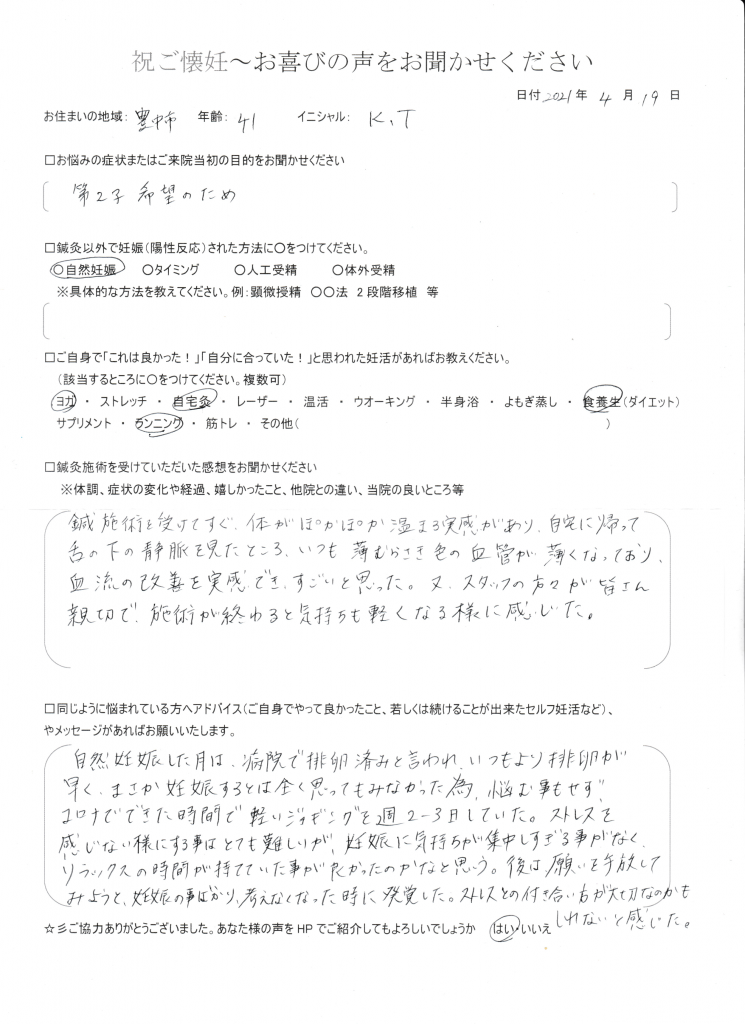 祝ご懐妊～お喜びの声をお聞かせください
日付 2021年 4 月 19 日
お住まいの地域: 豊中市 年齢: 41 イニシャル: K、T
□お悩みの症状またはご来院当初の目的をお聞かせください
第2子 希望のため
□鍼灸以外で妊娠(陽性反応)された方法に○をつけてください。
○自然妊娠 ○タイミング ○人工受精 ○体外受精
※具体的な方法を教えてください。例:顕微授精 ○○法 2段階移植 等
□ご自身で「これは良かった！」「自分に合っていた！」と思われた妊活があればお教えください。
(該当するところに○をつけてください。複数可)
ヨガ ・ ストレッチ ・ 自宅灸 ・ レーザー ・ 温活 ・ ウオーキング ・ 半身浴 ・ よもぎ蒸し ・ 食養生(ダイエット)
サプリメント ・ ランニング ・ 筋トレ ・ その他( )
□鍼灸施術を受けていただいた感想をお聞かせください
※体調、症状の変化や経過、嬉しかったこと、他院との違い、当院の良いところ等
鍼施術を受けてすぐ、体がぽかぽか温まる実感があり、自宅に帰って
舌の下の静脈を見たところ、いつも薄むらさき色の血管が薄くなっており、
血流の改善を実感でき、すごいと思った。又、スタッフの方々が皆さん
親切で、施術が終わると気持ちも軽くなる様に感じた。
□同じように悩まれている方へアドバイス(ご自身でやって良かったこと、若しくは続けることが出来たセルフ妊活など)、
やメッセージがあればお願いいたします。
自然妊娠した月は、病院で排卵済みと言われ、いつもより排卵が
早く、まさか妊娠するとは全く思ってもみなかった為、悩む事もせず
コロナでできた時間で軽いジョギングを週2-3日していた。ストレスを
感じない様にする事はとても難しいが、妊娠に気持ちが集中しすぎる事がなく、
リラックスの時間が持てていた事が良かったのかなと思う。後は願いを手放して
みようと、妊娠の事ばかり、考えなくなった時に発覚した。ストレスとの付き合い方が大切なのかも
しれないと感じた。
☆彡ご協力ありがとうございました。あなた様の声をHPでご紹介してもよろしいでしょうか はい・いいえ